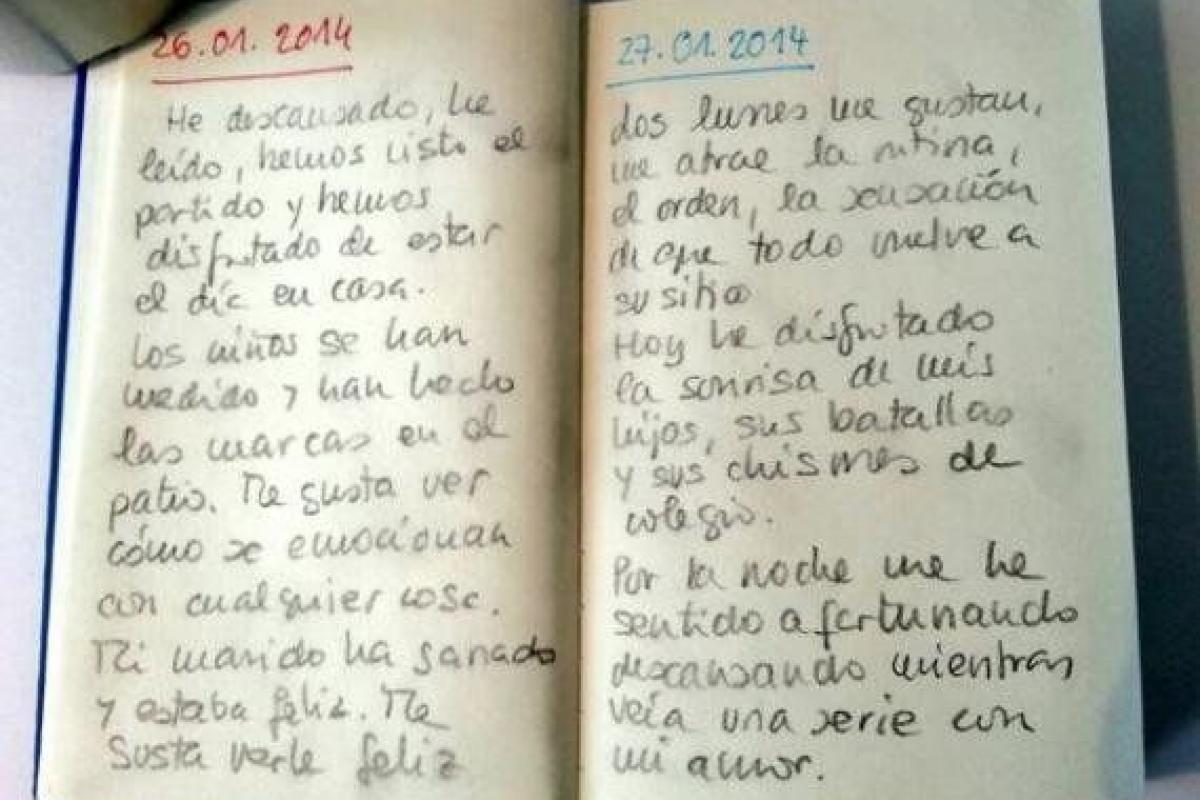 26.01.2014
He descansado, he
leído, hemos visto el
partido y hemos
disfrutado de estar
el día en casa.
Los niños se han
medido y han hecho
las marcas en el
patio. Me gusta ver
cómo se emocionan
con cualquier cosa.
Mi marido ha ganado
y estaba feliz. Me
gusta verle feliz
27.01.2014
Los lunes me gustan,
me atrae la rutina,
el orden, la sensación
de que todo vuelve a
su sitio
Hoy he disfrutado
la sonrisa de mis
hijos, sus batallas
y sus chismes de
colegio.
Por la noche me he
sentido afortunando
descansando mientras
veía una serie con
mi amor.